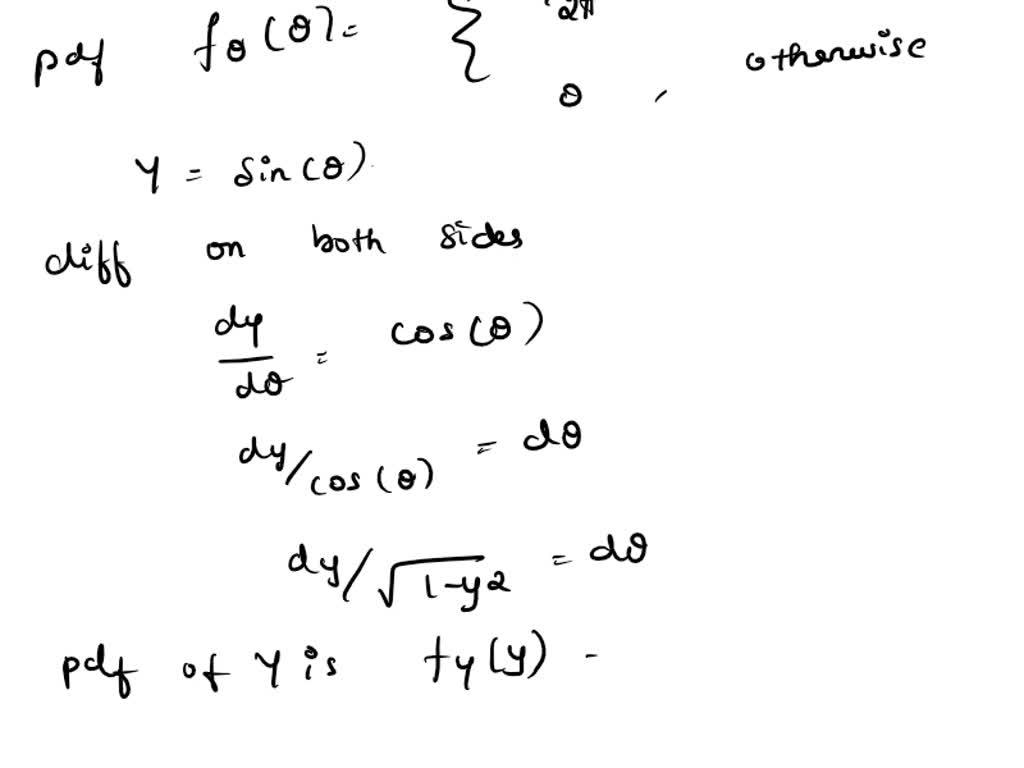 pdf fθ(θ)= { 2π
0 , otherwise
Y = sin(θ)
diff on both sides
dy/dθ = cos(θ)
dy/cos(θ) = dθ
dy/√1-y2 = dθ
pdf of Y is fy(y) -